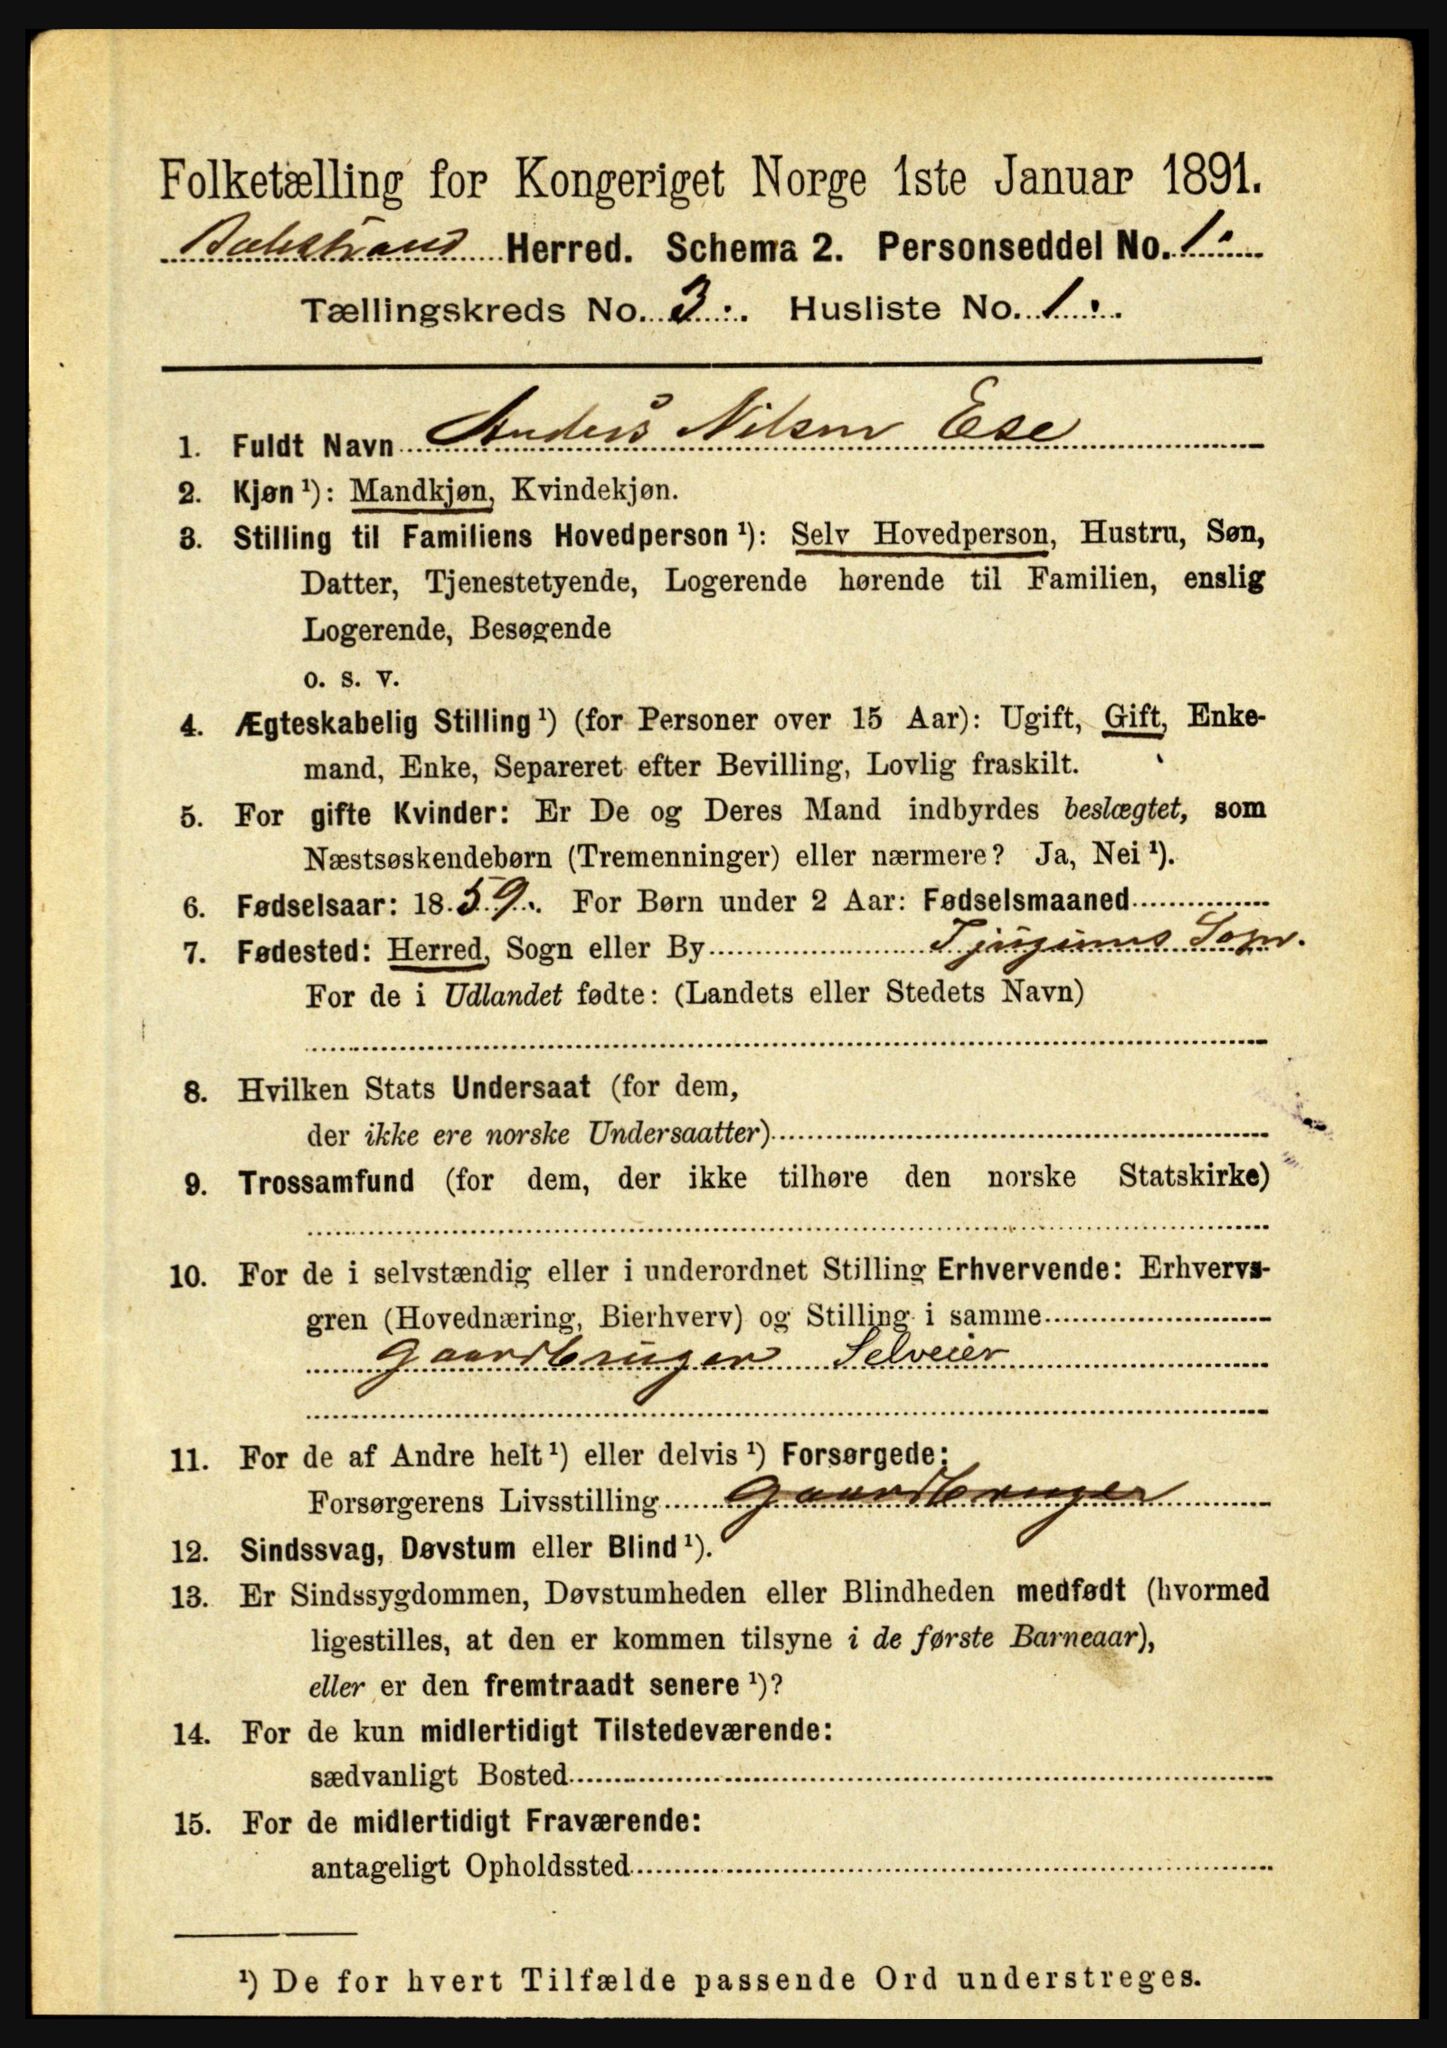 Folketælling for Kongeriget Norge 1ste Januar 1891.
Balestrand Herred. Schema 2. Personseddel No. 1.
Tællingskreds No. 3. Husliste No. 1.
1. Fuldt Navn Anders Nilsen Ese
2. Kjøn ¹): Mandkjøn, Kvindekjøn.
3. Stilling til Familiens Hovedperson ¹): Selv Hovedperson, Hustru, Søn,
Datter, Tjenestetyende, Logerende hørende til Familien, enslig
Logerende, Besøgende
o. s. v.
4. Ægteskabelig Stilling ¹) (for Personer over 15 Aar): Ugift, Gift, Enke-
mand, Enke, Separeret efter Bevilling, Lovlig fraskilt.
5. For gifte Kvinder: Er De og Deres Mand indbyrdes beslægtet, som
Næstsøskendebørn (Tremenninger) eller nærmere? Ja, Nei ¹).
6. Fødselsaar: 1859. For Børn under 2 Aar: Fødselsmaaned
7. Fødested: Herred, Sogn eller By Tjugums Sogn.
For de i Udlandet fødte: (Landets eller Stedets Navn)
8. Hvilken Stats Undersaat (for dem,
der ikke ere norske Undersaatter)
9. Trossamfund (for dem, der ikke tilhøre den norske Statskirke)
10. For de i selvstændig eller i underordnet Stilling Erhvervende: Erhvervs-
gren (Hovednæring, Bierhverv) og Stilling i samme
Gaardbruger Selveier
11. For de af Andre helt ¹) eller delvis ¹) Forsørgede:
Forsørgerens Livsstilling Gaardbruger
12. Sindssvag, Døvstum eller Blind ¹).
13. Er Sindssygdommen, Døvstumheden eller Blindheden medfødt (hvormed
ligestilles, at den er kommen tilsyne i de første Barneaar),
eller er den fremtraadt senere ¹)?
14. For de kun midlertidigt Tilstedeværende:
sædvanligt Bosted
15. For de midlertidigt Fraværende:
antageligt Opholdssted
¹) De for hvert Tilfælde passende Ord understreges.